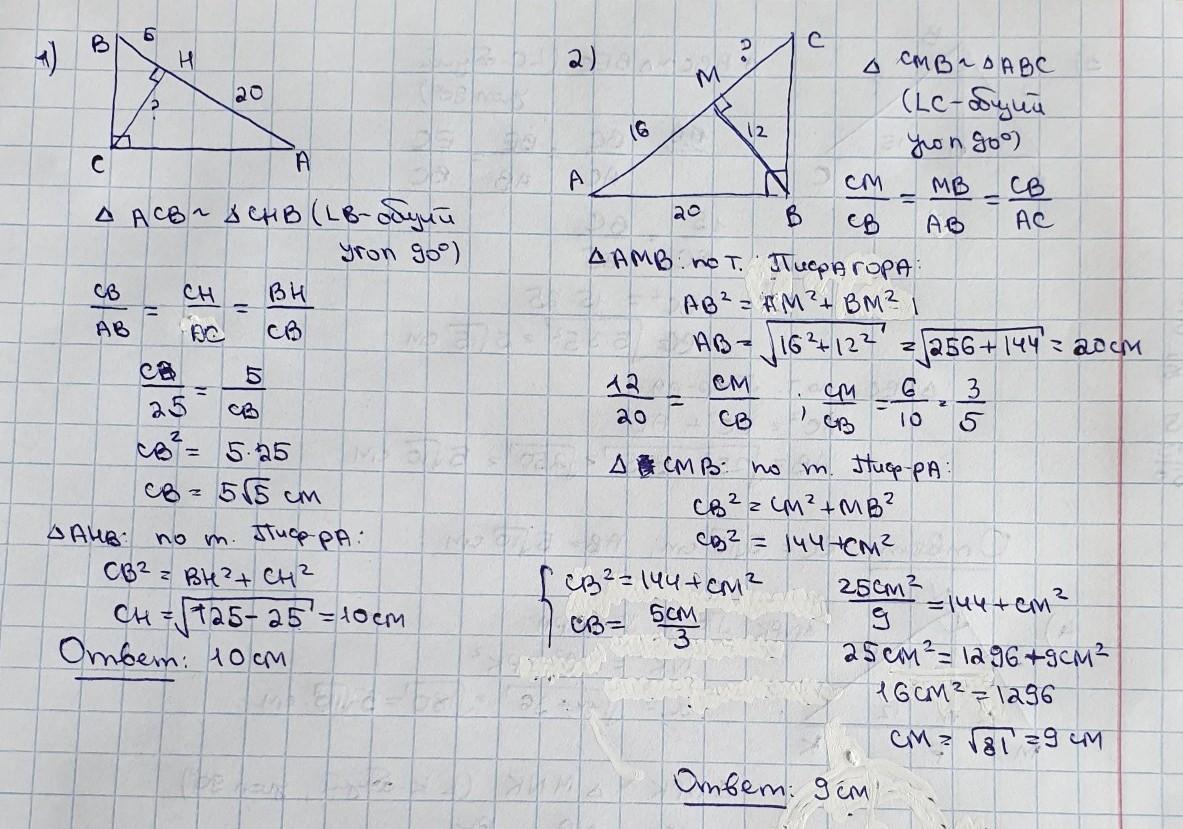 1)
B 5 H 20
?
C A
△ ACB ~ △CHB (∠B-общий
угол 90°)
CB/AB = CH/AC = BH/CB
CB/25 = 5/CB
CB² = 5·25
CB = 5√5 см
△AHB: по т. Пиф-рА:
CB² = BH² + CH²
CH = √125-25 = 10см
Ответ: 10см
2)
? C
M
16 12
A
20 B
△ CMB ~ △ABC
(∠C-общий
угол 90°)
CM/CB = MB/AB = CB/AC
△AMB: по т. ПифАгорА:
AB² = AM² + BM²
AB = √16²+12² = √256+144 = 20см
12/20 = CM/CB ; CM/CB = 6/10 = 3/5
△ CMB: по т. Пиф-рА:
CB² = CM² + MB²
CB² = 144 + CM²
{ CB² = 144 + CM²
CB = 5CM/3
25CM²/9 = 144 + CM²
25CM² = 1296 + 9CM²
16CM² = 1296
CM = √81 = 9 см
Ответ: 9см